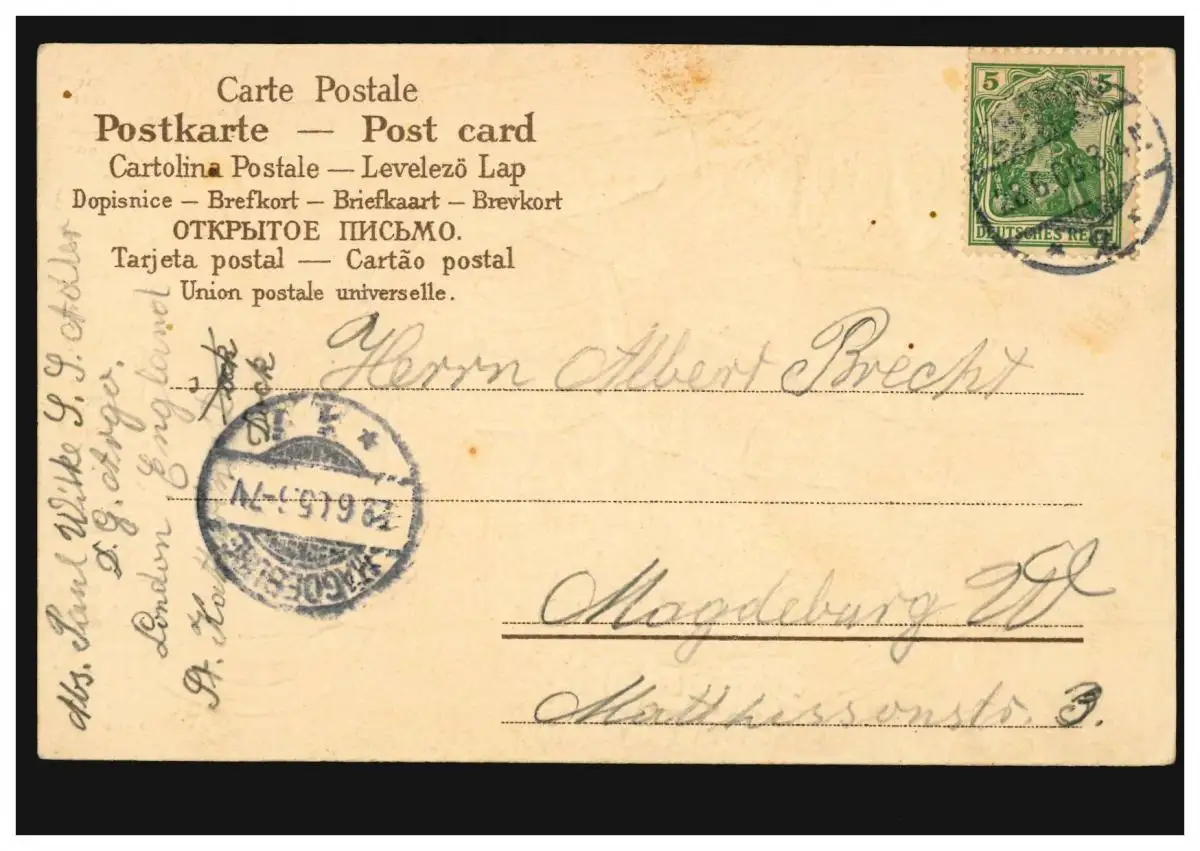 Carte Postale
Postkarte — Post card
Cartolina Postale — Levelezö Lap
Dopisnice — Brefkort — Briefkaart — Brevkort
ОТКРЫТОЕ ПИСЬМО.
Tarjeta postal — Cartão postal
Union postale universelle.
5 5
DEUTSCHES REICH
Herrn Albert Brecht
Magdeburg W
Matthissonstr. 3.
MAGDEBURG
Abs. Paul Wilke S. S. Adler
D. G. Argo.
London England
St. Kath
Dock